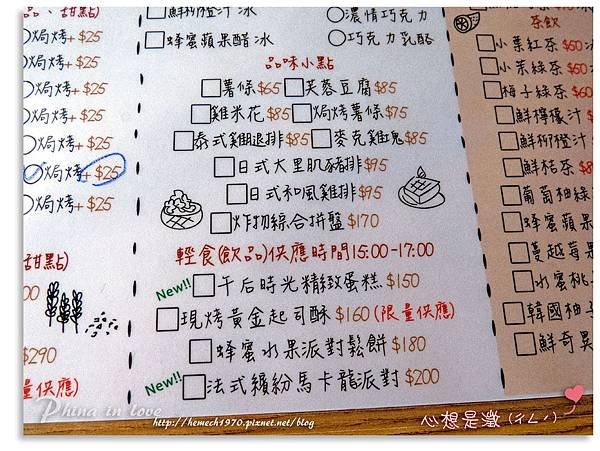 品、甜點)
焗烤+$25
焗烤+$25
焗烤+$25
焗烤+$25
焗烤+$25
焗烤+$25
甜點)
00
$290
量供應)
鮮柳橙汁 冰
蜂蜜蘋果醋 冰
濃情巧克力
巧克力乳酪
品味小點
薯條$65 芙蓉豆腐$85
雞米花$85 焗烤薯條$75
泰式雞腿排$85 麥克雞塊$85
日式大里肌豬排$95
日式和風雞排$95
炸物綜合拼盤$170
輕食(飲品)供應時間15:00-17:00
New!! 午后時光精緻蛋糕 $150
現烤黃金起司酥 $160 (限量供應)
蜂蜜水果派對鬆餅 $180
New!! 法式繽紛馬卡龍派對 $200
茶飲
小葉紅茶 $60
小茉綠茶 $60
梅子綠茶 $60
鮮檸檬汁
鮮柳橙汁
鮮桔茶 $8
葡萄柚綠
蜂蜜蘋果
蔓越莓果
水蜜桃
韓國柚子
鮮奇異
Phina in love
http://hemech1970.pixnet.net/blog
心想是澂(ㄔㄥˊ)